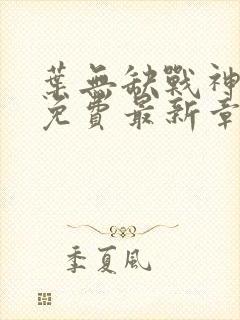 葉無缺戰神
免費最新章
季夏風